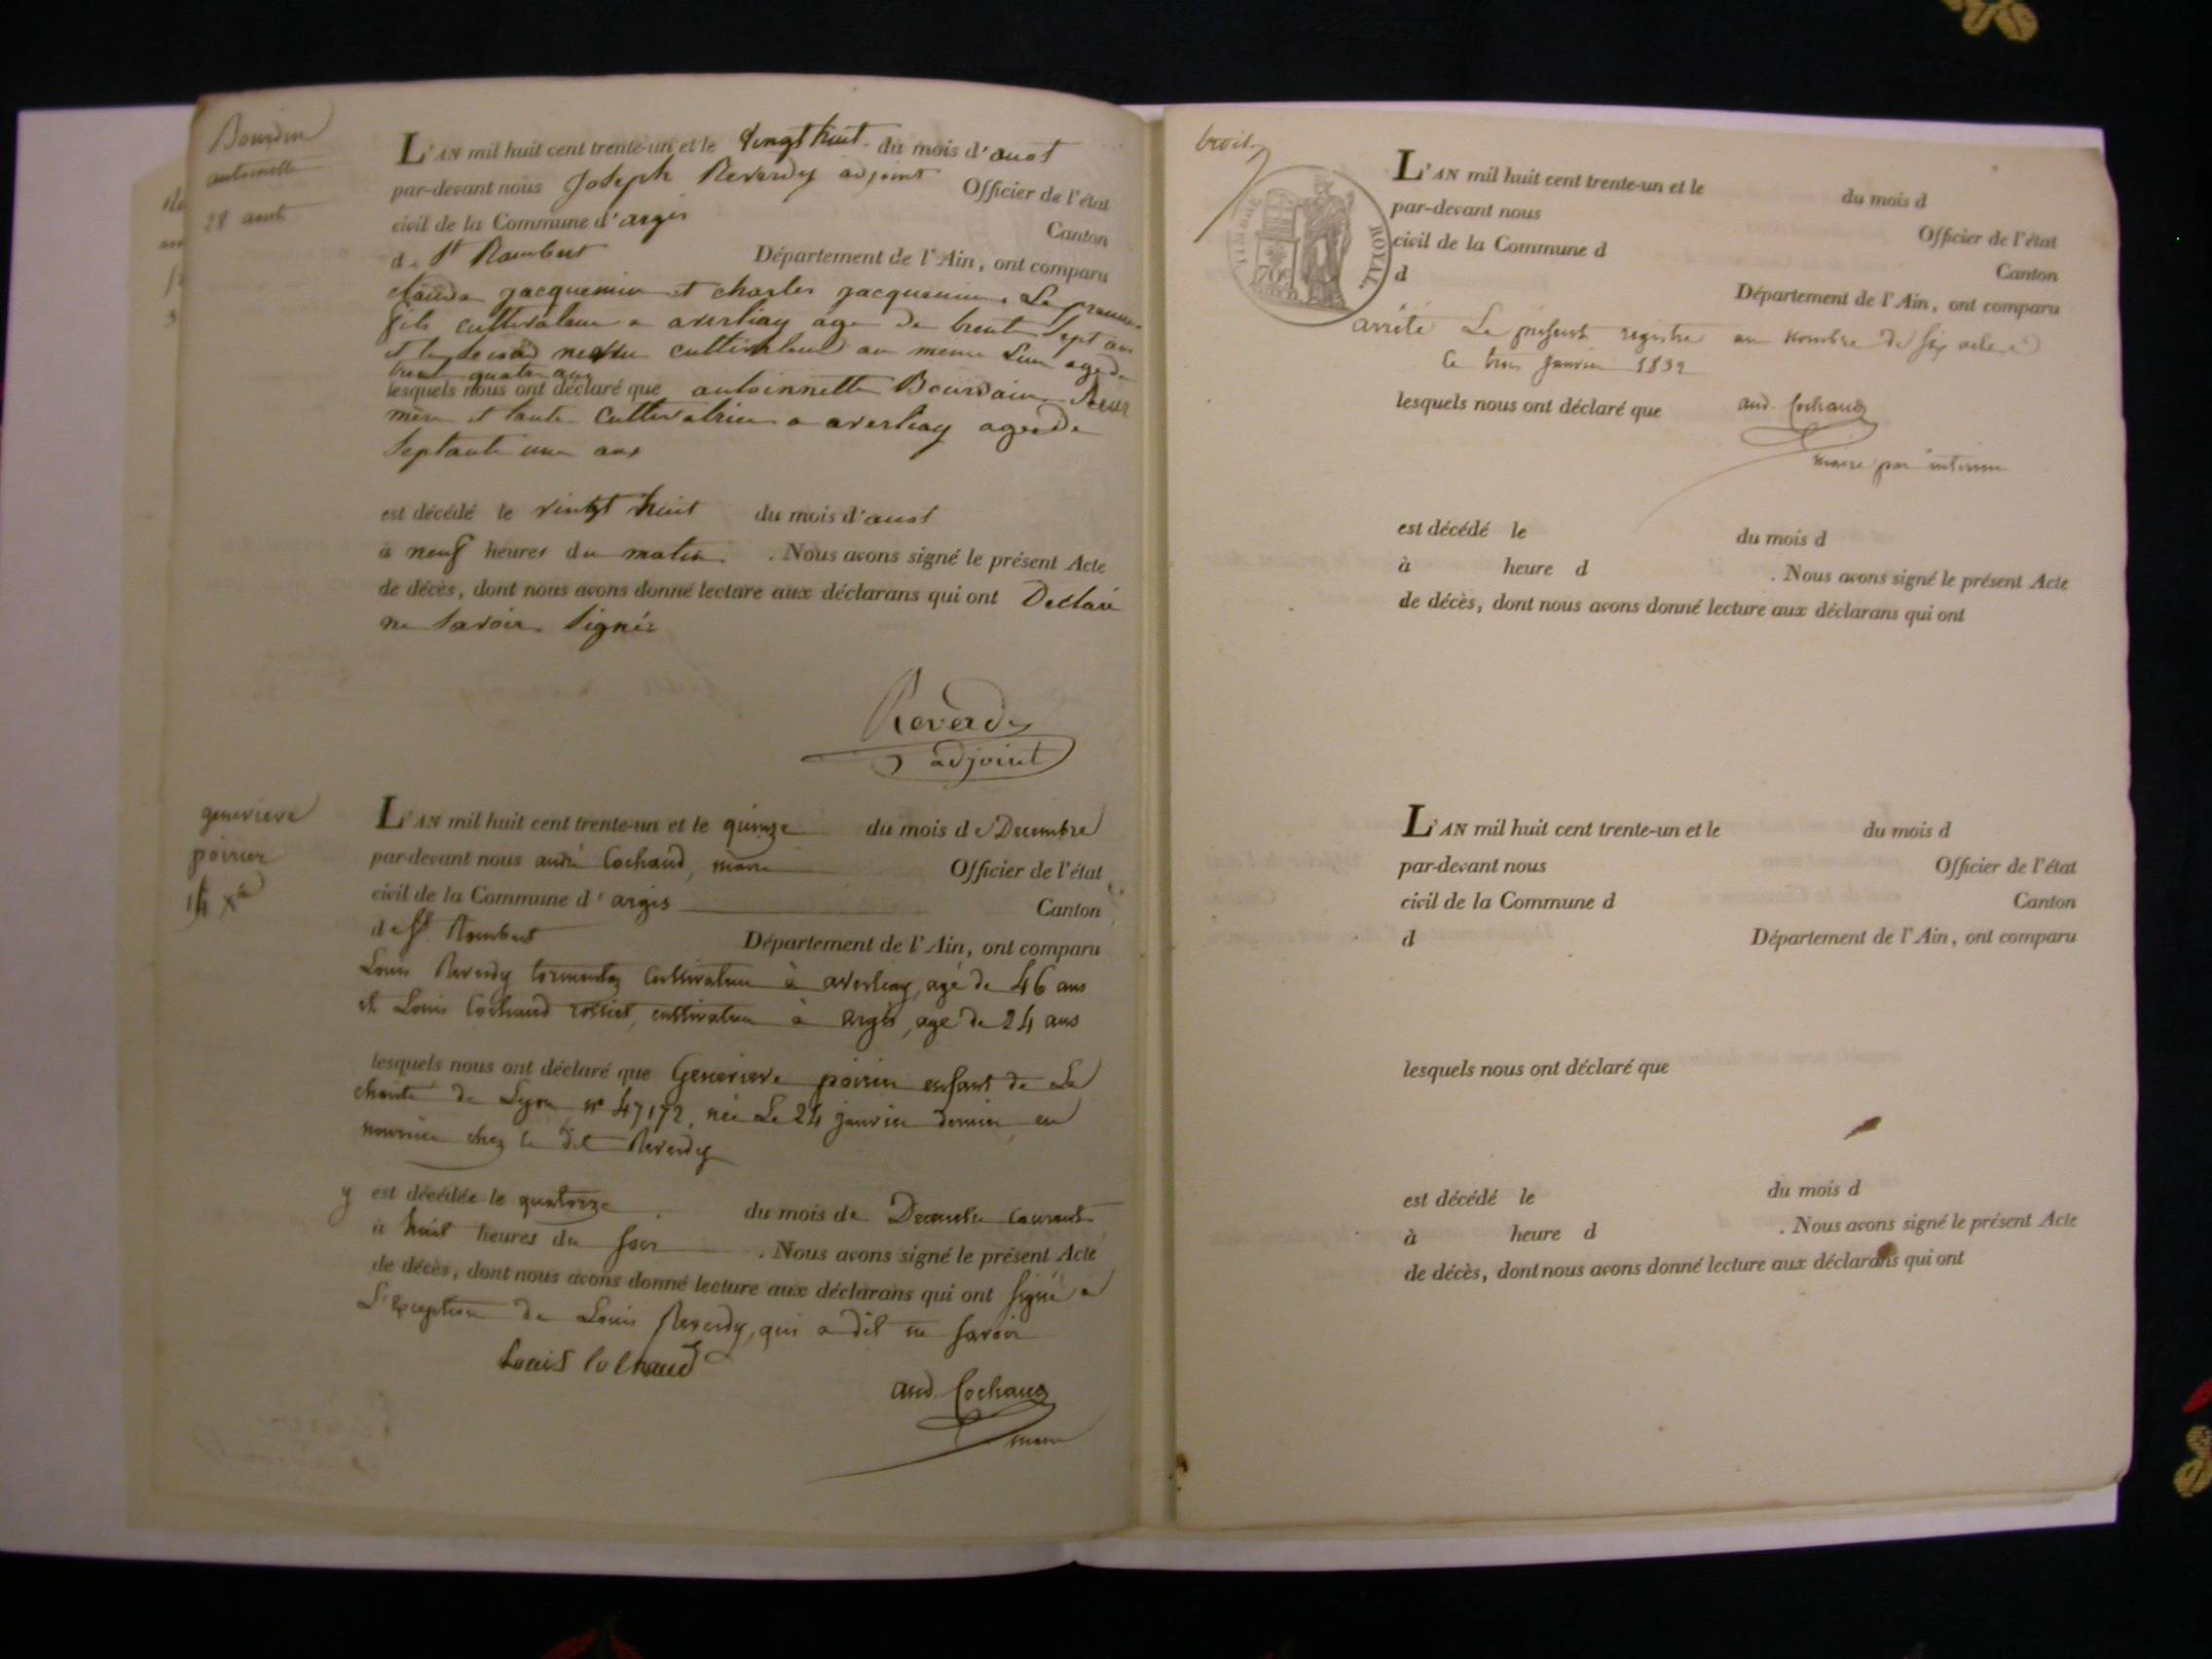 Bourdin
antoinette
28 aout
L'AN mil huit cent trente-un et le vingt huit du mois d'auot
par-devant nous Joseph Reverdy adjoint Officier de l'état
civil de la Commune d'argis Canton
d. St Rambert Département de l'Ain, ont comparu
claude jacquemin et charles jacquemin. Le premier
fils cultivateur a averliay age de trent sept ans
et le second neveu cultivateur au meme Lieu age de
trent quatre ans
lesquels nous ont déclaré que antoinnette Bourdain
mère et tante cultivatrice a averliay agee De
Septante une ans
est décédé le vintgt huit du mois d'auot
à neuf heures du matin . Nous avons signé le présent Acte
de décès, dont nous avons donné lecture aux déclarans qui ont Declaré
ne Savoir Signér
Reverdy
adjoint
genevieve
poirier
14 Xbre
L'AN mil huit cent trente-un et le quinze du mois de Decembre
par-devant nous andré Cochaud, maire Officier de l'état
civil de la Commune d'argis Canton
de St. Rambert Département de l'Ain, ont comparu
Louis Reverdy cultivateur à averliay, agé de 46 ans
et Louis Cochaud rosset, cultivateur à argis, age de 24 ans
lesquels nous ont déclaré que Genevieve poirier enfant de La
charité de Lyon n° 47172, née Le 24 janvier dernier en
nourrice chez le dit Reverdy
y est décédée le quatorze du mois de Decembre courant
à huit heures du soir . Nous avons signé le présent Acte
de décès, dont nous avons donné lecture aux déclarans qui ont signé a
L'exception de Louis Reverdy, qui a dit ne savoir
Louis Cochaud
and. Cochaud
maire
trois
TIMBRE ROYAL.
70c
L'AN mil huit cent trente-un et le du mois d
par-devant nous Officier de l'état
civil de la Commune d Canton
d Département de l'Ain, ont comparu
arrêté Le présent registre au nombre de six actes
Le trois janvier 1832
lesquels nous ont déclaré que and. Cochaud
maire par interim
est décédé le du mois d
à heure d . Nous avons signé le présent Acte
de décès, dont nous avons donné lecture aux déclarans qui ont
L'AN mil huit cent trente-un et le du mois d
par-devant nous Officier de l'état
civil de la Commune d Canton
d Département de l'Ain, ont comparu
lesquels nous ont déclaré que
est décédé le du mois d
à heure d . Nous avons signé le présent Acte
de décès, dont nous avons donné lecture aux déclarans qui ont